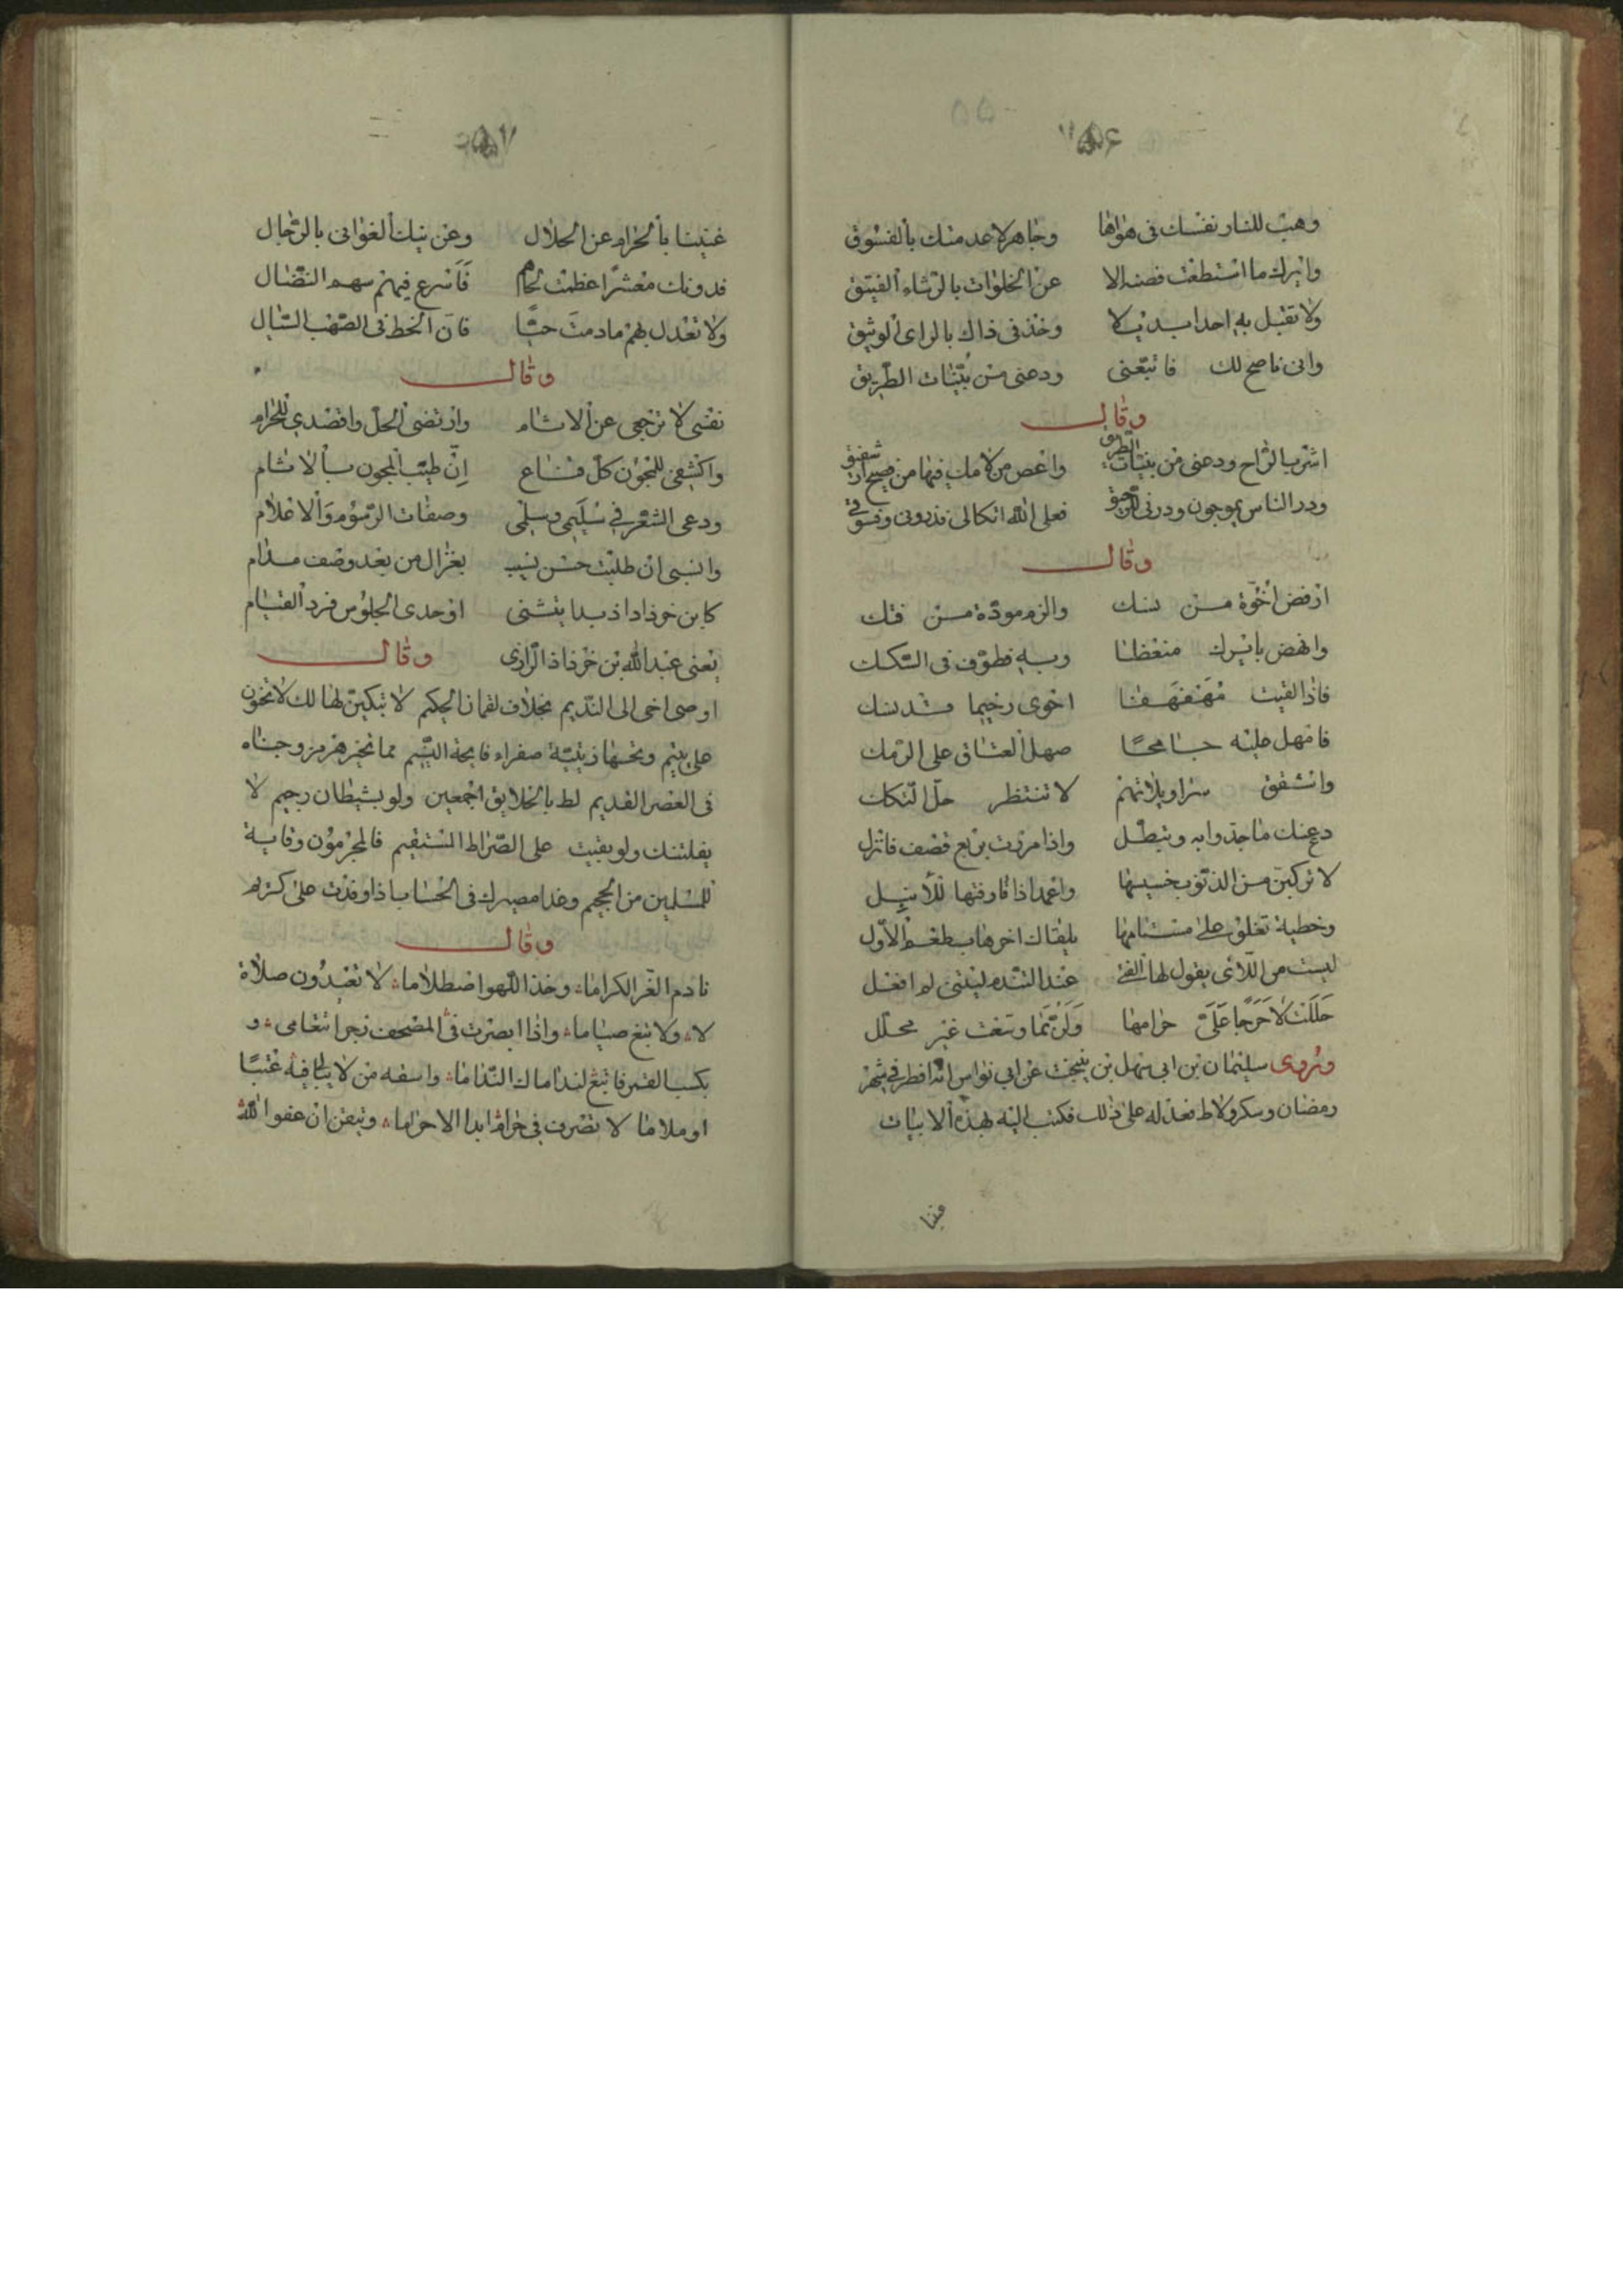 ٥٥٦
وهب للنار نفسك فى هواها وجاهر لاعدمتك بالفسوق
وايرك ما استطعت فصنه الا عن الخلوات بالرشاء الفتيق
ولا تقبل به احدا بديلا وخذ فى ذاك بالراى الوثيق
وانى ناصح لك فاتبعنى ودعنى من بنيات الطريق
وقال
اشرب الراح ودعنى من بنيات الطريق واعص من لامك فيها من فصيح او شفيق
وذر الناس يموجون وذرنى فعلى الله اتكالى فذرونى وفسوقى
وقال
ارفض اخوة من نسك والزم مودة من فتك
وانهض بايرك منعظا وبه فطوف فى السكك
فاذا لقيت مهفهفا احوى رخيما
فامهل عليه جامحا صهل العتاق على الرمك
وانشفق سراويلاتهم لا تنتظر حل التكك
دع عنك ما جدوا به وتبطل واذا مررت بربع قصف فانزل
لا تركبن من الذنوب خسيسها واعمد اذا قارفتها للأنبل
وخطيئة تغلو على مستامها يلقاك اخرها بطعم الأول
ليست من اللائى يقول لها الفتى عند التندم ليتنى لم افعل
حللت لا حرجا على حرامها ولربما وسعت غير محلل
ويروى سليمان بن ابى سهل بن نيبخت عن ابى نواس انه افطر فى شهر
رمضان وسكر ولاط فعذله على ذلك فكتب اليه بهذه الابيات
غنينا
٥٥٧
غنينا بالحرام عن الحلال وعن نيك الغوانى بالرجال
فدونك معشرا عظمت فأسرع فيهم سهم النضال
ولا تعدل بهم ما دمت حيا فان الخط فى الصهب السبال
وقال
نفسى لا ترجعى عن الاثام وارتضى الحل واقصدى للحرام
واكشفى للمجون كل قناع إن طيب المجون بالاثام
ودعى الشعر فى سليمى وسلمى وصفات الرسوم والاعلام
وانسبى ان طلبت حسن نسيب بغزال من بعد وصف مدام
كابن خرذاداذ بدا يتثنى اوحدى الجلوس فرد القيام
يعنى عبد الله بن خرذاذ الرازى وقال
اوصى اخى الى النديم بخلاف لقمان الحكيم لا تبكين لهالك لا تحنون
على يتيم وتحسها زيتية صفراء فايحة النسيم مما تخير هرمز وجناه
فى العصر القديم لط بالخلايق اجمعين ولو بشيطان رجيم لا
يفلتنك ولو بقيت على الصراط المستقيم فالمجرمون وقاية
للمسلمين من الجحيم وغدا مصيرك فى الحساب اذا وفدت على كريم
وقال
نادم الغر الكراما وخذ اللهو اضطلاما لا تعبدون صلاة
لا ولا تبغ صياما واذا ابصرت فى المصحف نجرا تعامى و
بكسب القس فابتغ لنداماك الندامى واسفه من لا يبالى فيه عتبا
او ملاما لا تصرف فى حرام ابدا الا حراما وتيقن ان عفو الله